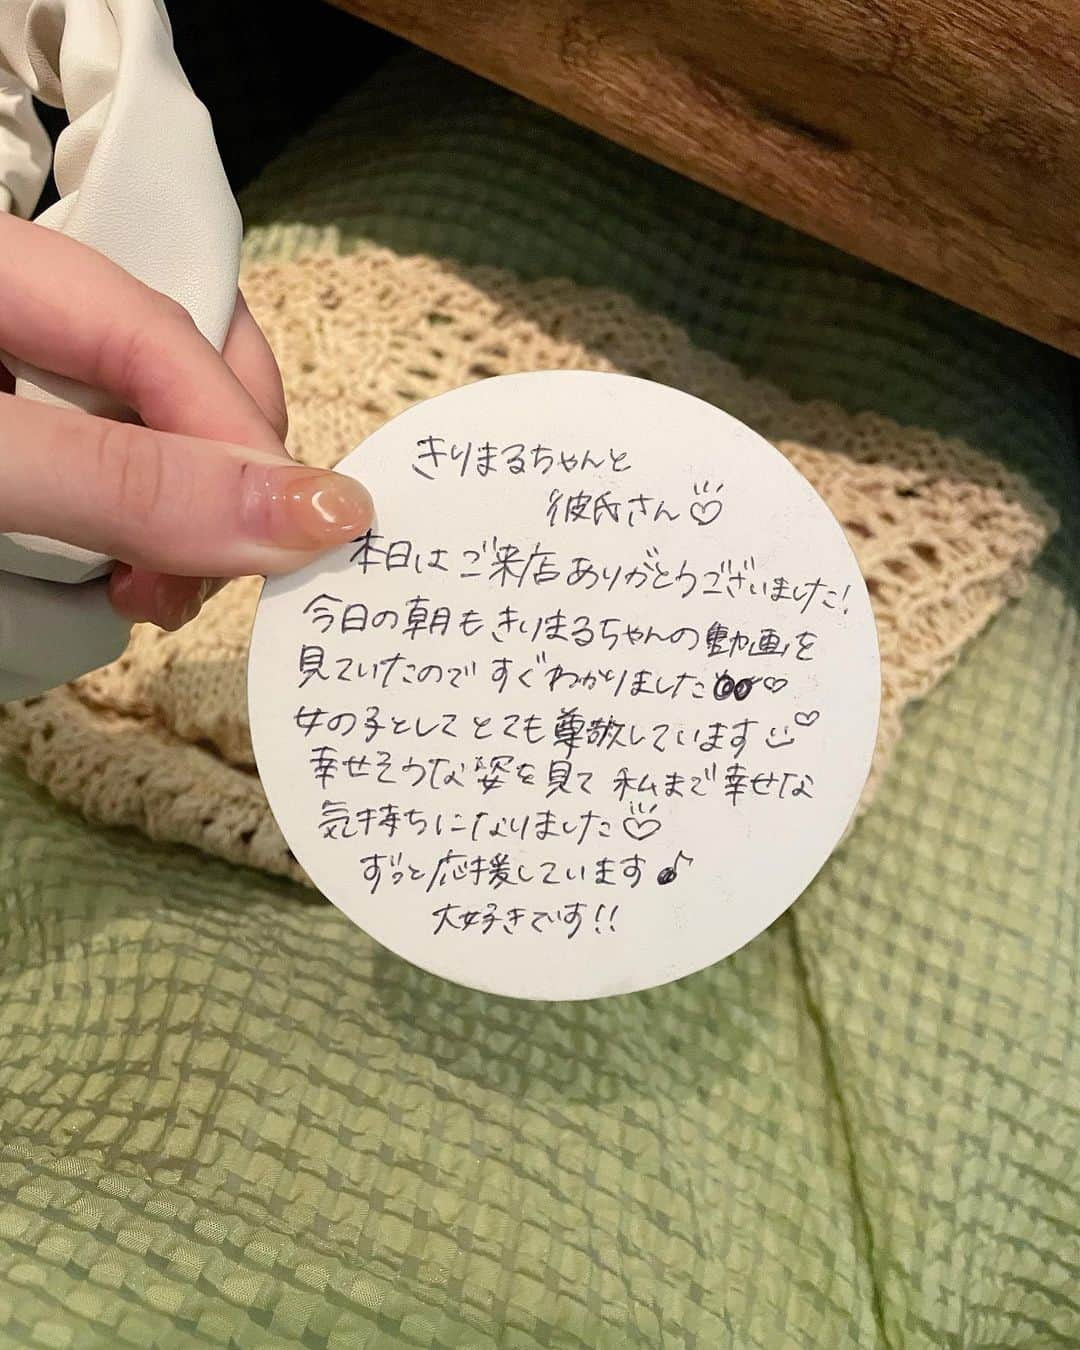 きりまるちゃんと
彼氏さん♡
本日はご来店ありがとうございました!
今日の朝もきりまるちゃんの動画を
見ていたのですぐわかりました♡
女の子としてとても尊敬しています♡
幸せそうな姿を見て私まで幸せな
気持ちになりました♡
ずっと応援しています♪
大好きです!!